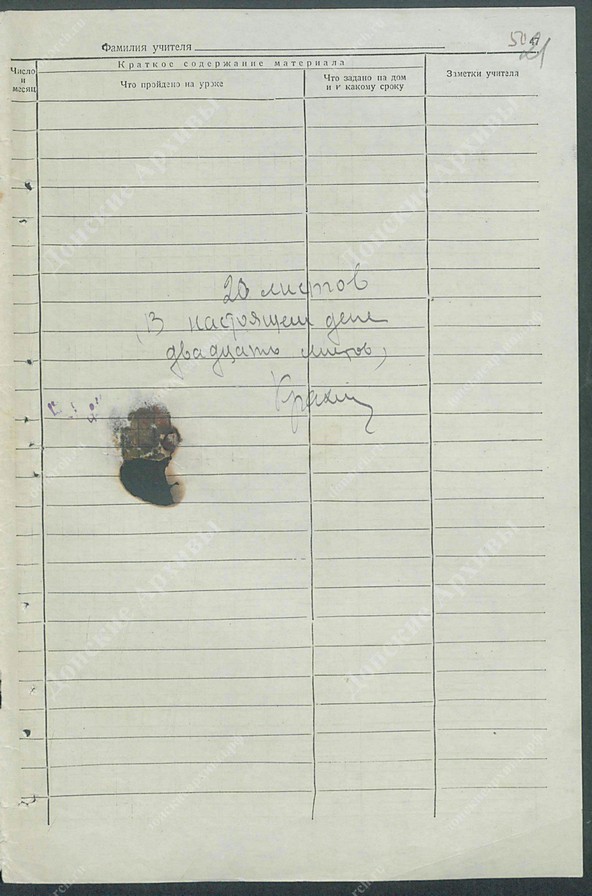 Фамилия учителя
47
21
Число и месяц
Краткое содержание материала
Что пройдено на уроке
Что задано на дом и к какому сроку
Заметки учителя
20 листов
(В настоящем деле
двадцать листов)
Донские Архивы
Донские Архивы
Донские Архивы
Донские Архивы